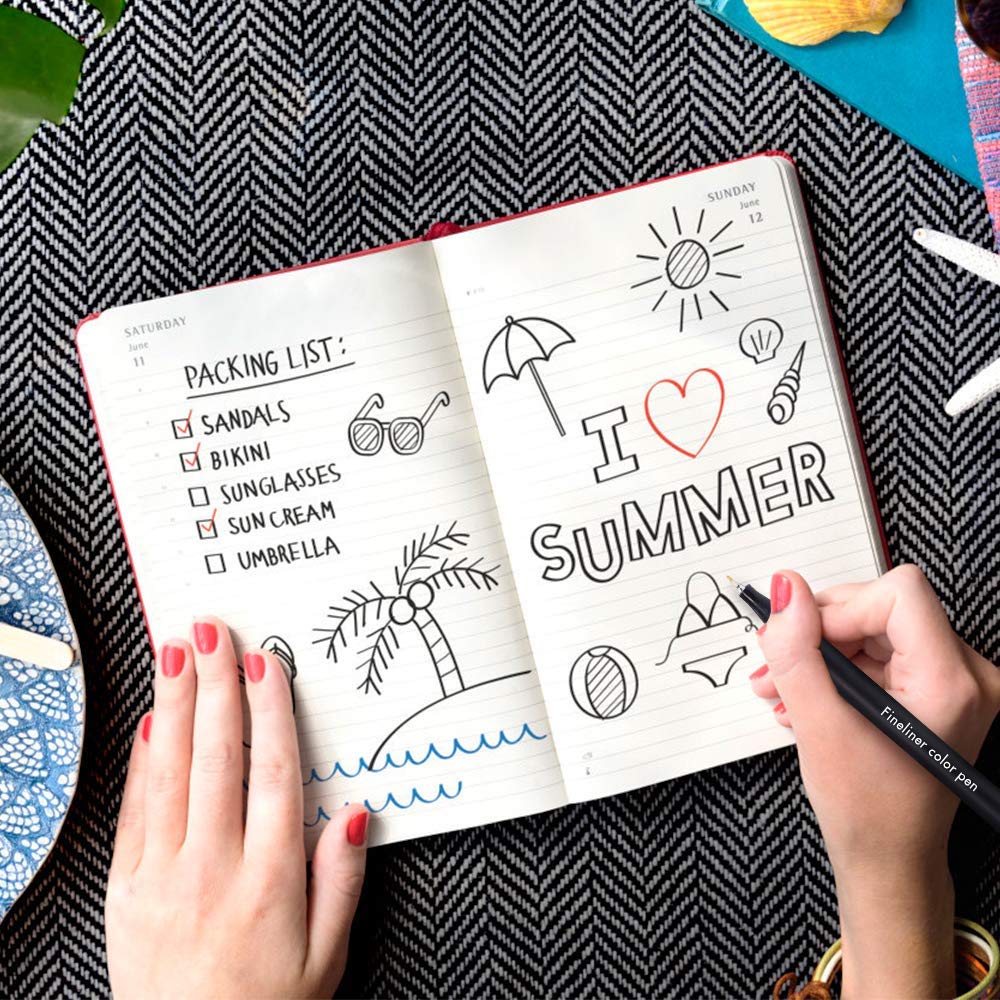 SATURDAY
June
11
PACKING LIST:
SANDALS
BIKINI
SUNGLASSES
SUN CREAM
UMBRELLA
SUNDAY
June
12
I
SUMMER
Fineliner color pen